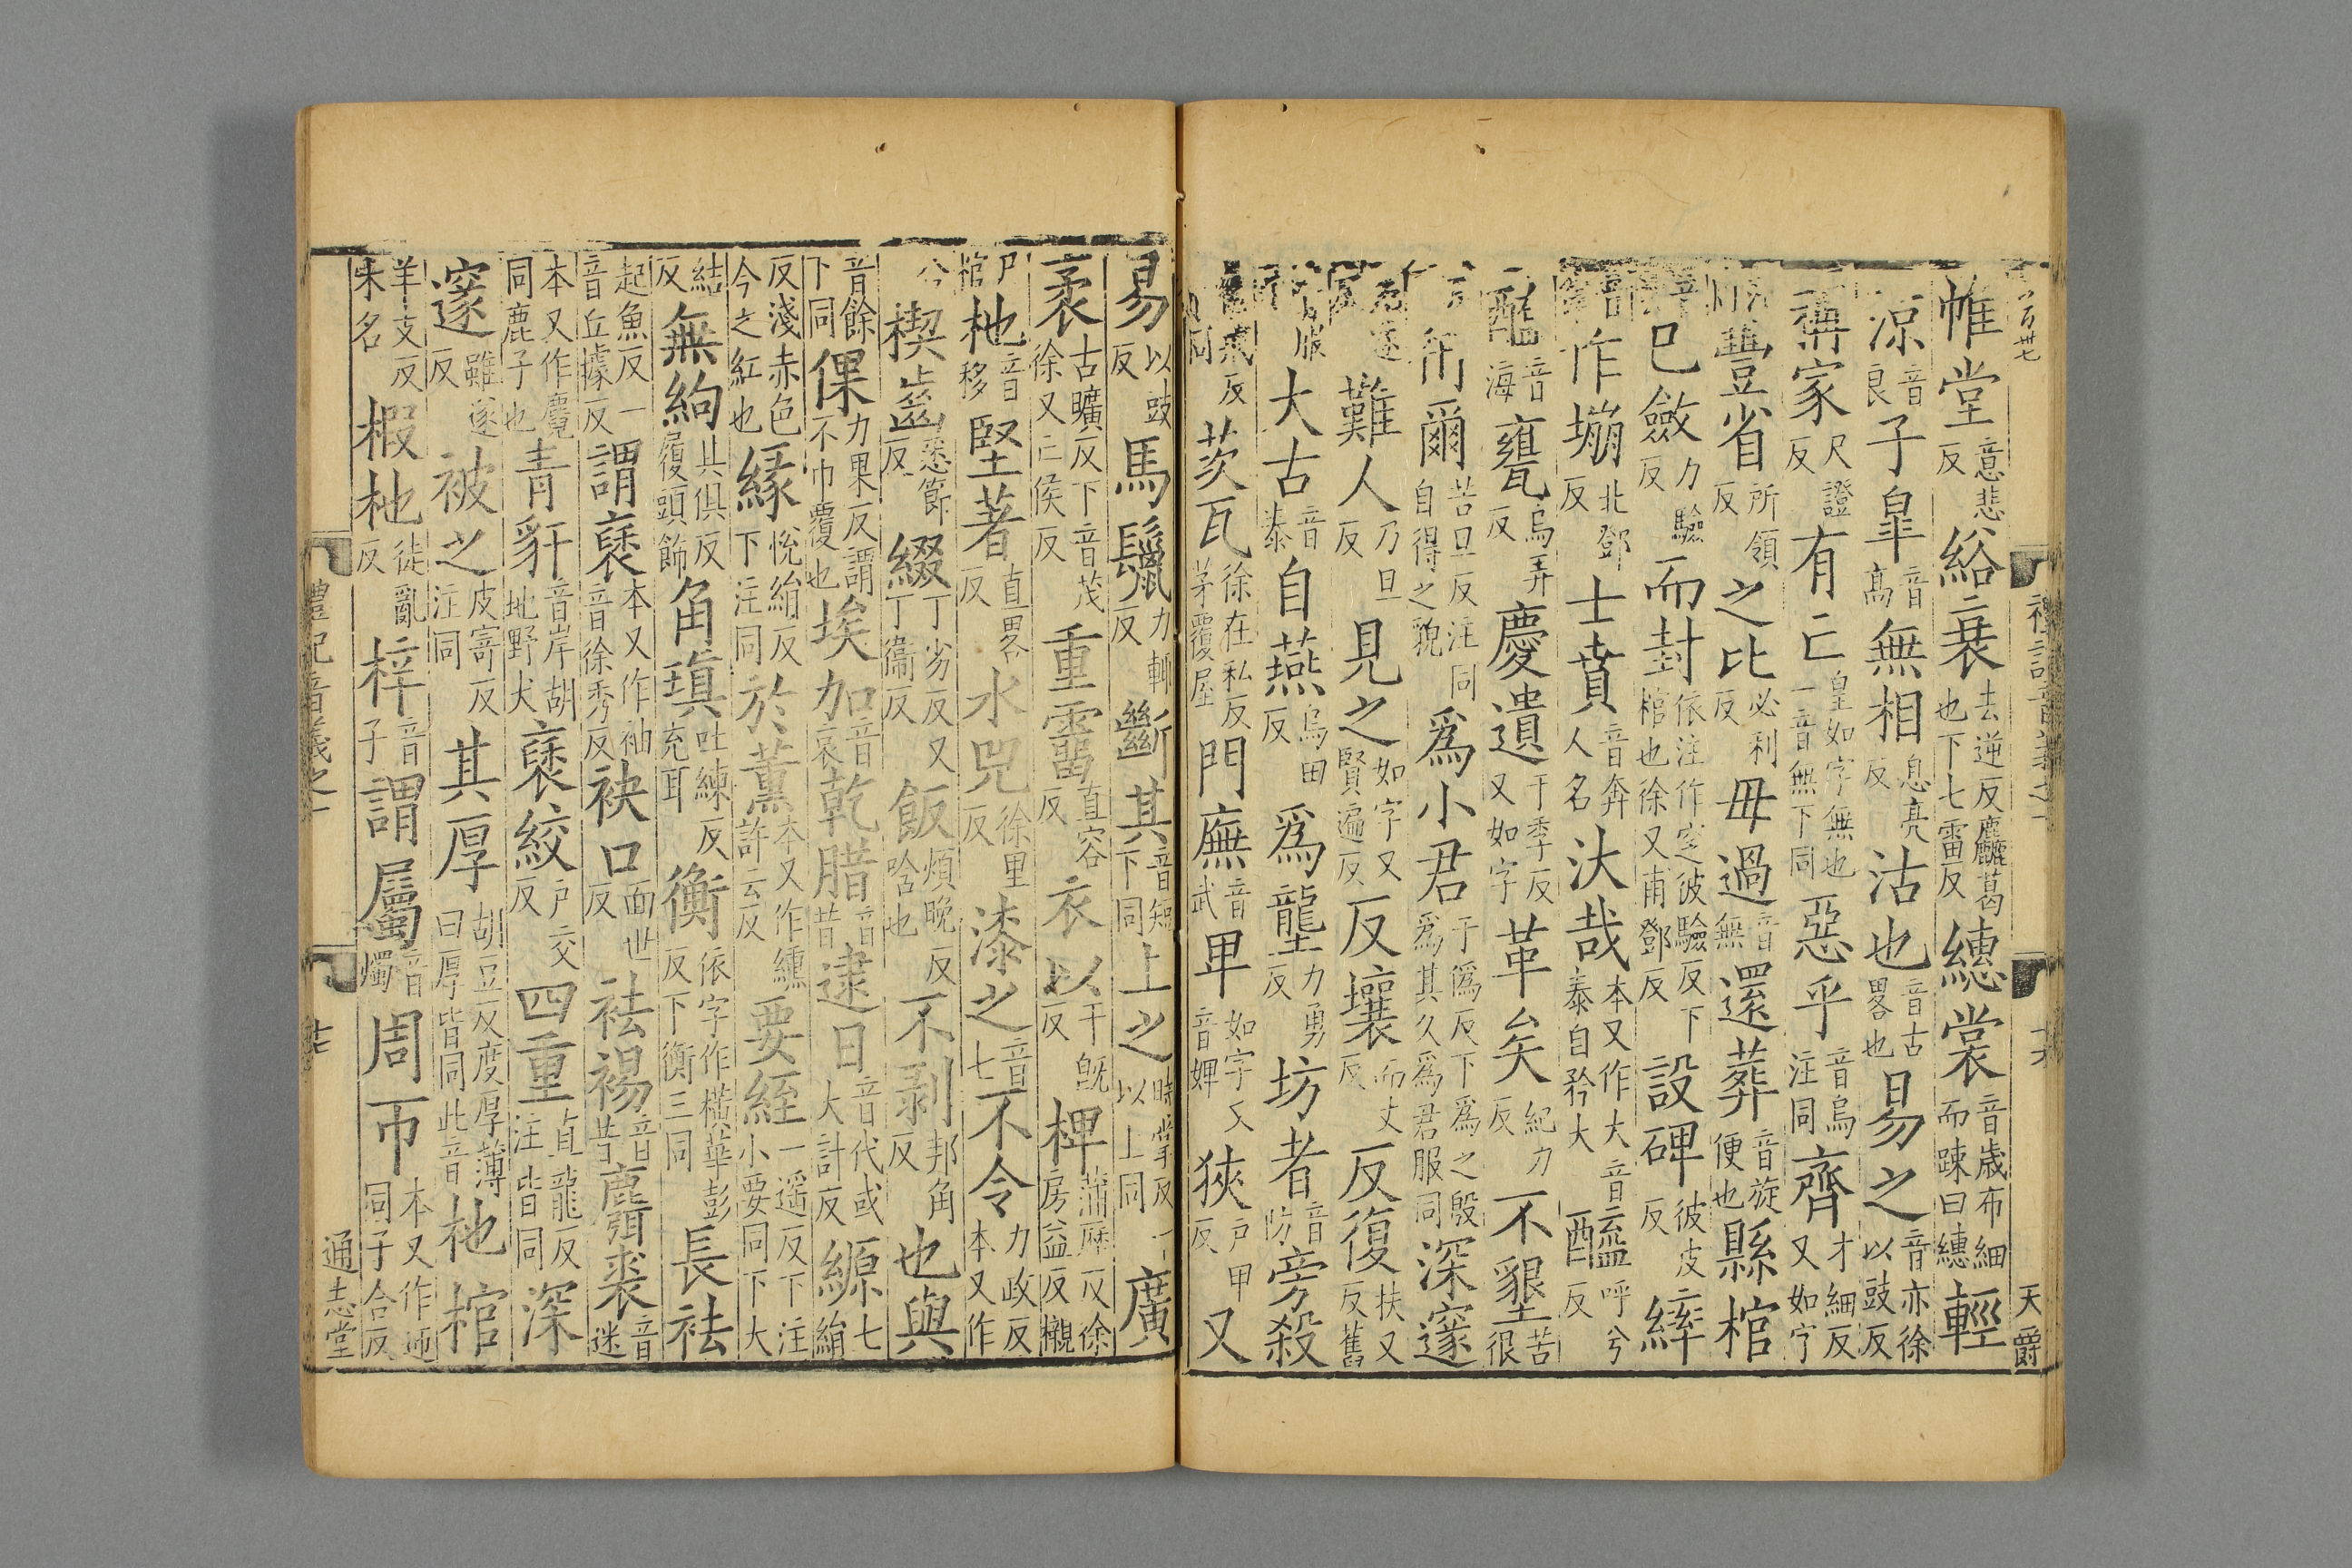 帷堂意悲反綌衰去逆反麤葛也下七雷反繐裳音歲布細而踈曰繐輕
涼音良子皐音高無相息亮反沽也音古畧也易之音亦徐以豉反
稱家尺證反有亡皇如字無也一音無下同惡乎音烏注同齊才細反又如字
豐省所領反之比必利反毋過音無還葬音旋便也縣棺
已斂力驗反而封依注作窆彼驗反下棺也徐又甫鄧反設碑彼皮反繂
作堋北鄧反士賁音奔人名汏哉本又作大音泰自矜大醯呼兮反
醢音海甕烏弄反慶遺于季反又如字革矣紀力反不墾苦很
衎爾苦旦反注同自得之貌爲小君于僞反下爲之殷爲其久爲君服同深邃
難人乃旦反見之如字又賢遍反反壤而丈反反復扶又反舊
大古音泰自燕烏田反爲壟力勇反坊者音防旁殺
戒反茨瓦徐在私反茅覆屋門廡音武卑如字又音婢狹戶甲反又
禮記音義之一
天爵
易以豉反馬鬣力輒反斷其音短下同上之時掌反一以上同廣
袤古曠反下音茂徐又亡侯反重霤直容反衣以于旣反椑蒲歷反徐房益反櫬
尸棺杝音移堅著直畧反水兕徐里反漆之音七不令力政反本又作
楔齒悉節反綴丁劣反又丁衞反飯煩晚反唅也不剥邦角反也與
音餘下同倮力果反謂不巾覆也埃加音哀乾腊音昔逮日音代或大計反縓七絹
反淺赤色今之紅也緣恱絹反下注同於薰本又作纁許云反要絰一遥反下注小要同下大
結反無絇其俱反履頭飾角瑱吐練反充耳衡依字作横華彭反下衡三同長袪
起魚反一音丘據反謂褎本又作袖音徐秀反袂口面世反袪裼音昔麛裘音迷
本又作麑同鹿子也青豻音岸胡地野犬褎絞戶交反四重直龍反注皆同深
邃雖遂反被之皮寄反注同其厚胡豆反度厚薄曰厚皆同此音杝棺
羊支反木名椵杝徒亂反梓音子謂屬音燭周帀本又作迊同子合反
禮記音義之一
通志堂